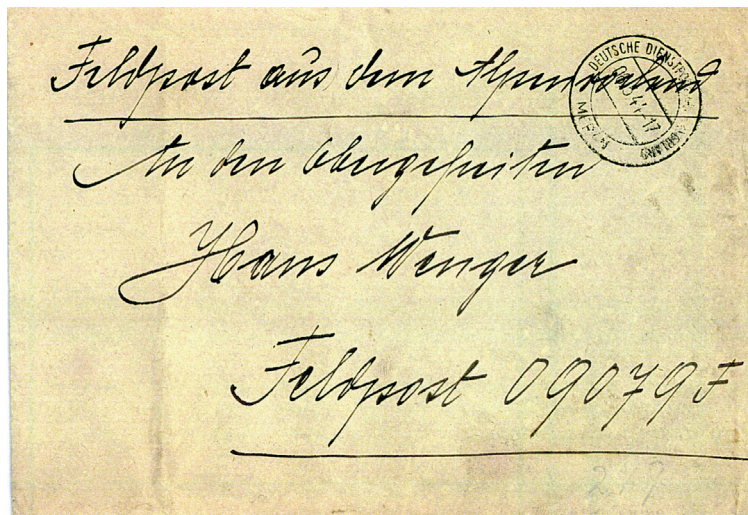 Feldpost aus dem Alpenvorland
DEUTSCHE DIENSTPOST
44-17
MERAN
An den Obergefreiten
Hans Wenger
Feldpost 09079 F